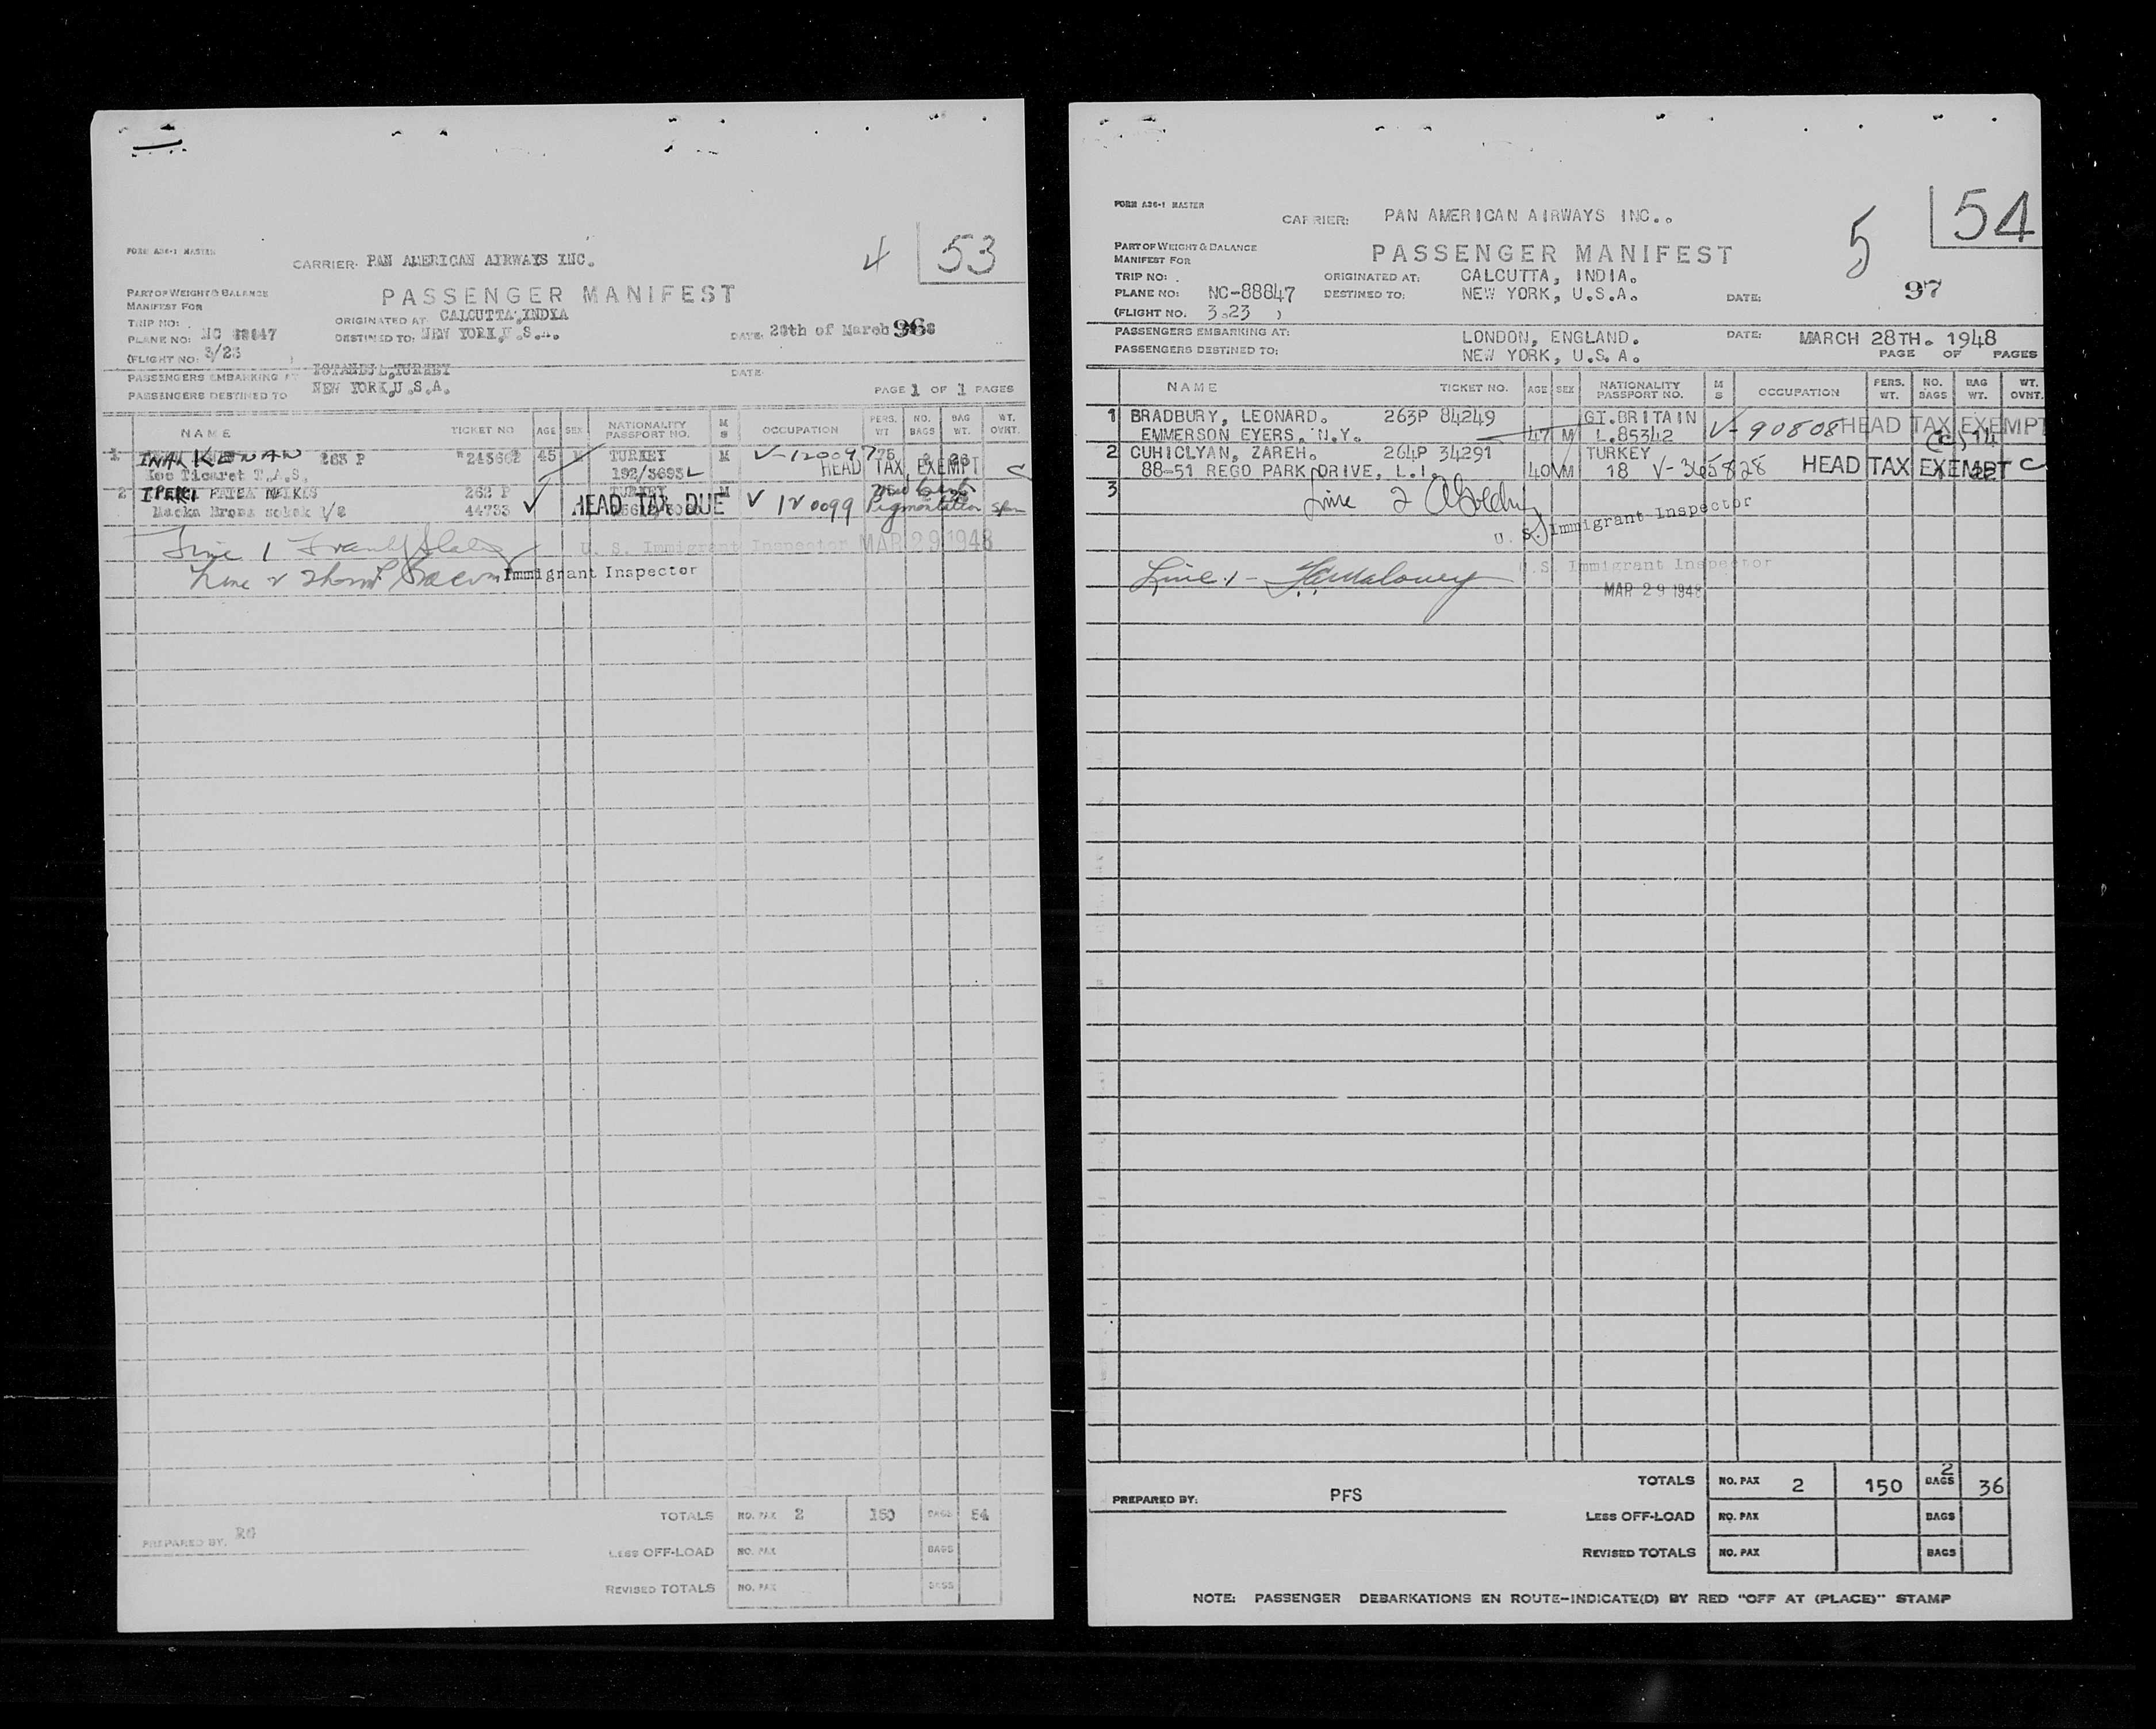 FORM A36-1 MASTER
CARRIER: PAN AMERICAN AIRWAYS INC.
4 53
PART OF WEIGHT & BALANCE
MANIFEST FOR
PASSENGER MANIFEST
TRIP NO:
ORIGINATED AT: CALCUTTA, INDIA
PLANE NO: NC 88847
DESTINED TO: NEW YORK, U.S.A.
DATE: 28th of March 96
(FLIGHT NO: 3/23 )
PASSENGERS EMBARKING AT ISTANBUL, TURKEY
DATE:
PASSENGERS DESTINED TO NEW YORK, U.S.A.
PAGE 1 OF 1 PAGES
NAME TICKET NO AGE SEX NATIONALITY PASSPORT NO. M S OCCUPATION PERS. WT NO. BAGS BAG WT. WT. OVNT.
1 INAL KENAN 263 P 245662 45 M TURKEY M V-120097 75
Koc Ticaret T.A.S. 192/3693 L HEAD TAX EXEMPT C
2 262 P TURKEY M
Macka Bronz sokak 1/2 44733 ✓ HEAD TAX DUE V 120099 Pigmentation
Line 1 U. S. Immigrant Inspector MAR 29 1948
Line 2 Immigrant Inspector
TOTALS NO. PAX 2 150 BAGS 54
PREPARED BY: RG
LESS OFF-LOAD NO. PAX BAGS
REVISED TOTALS NO. PAX BAGS
FORM A36-1 MASTER
CARRIER: PAN AMERICAN AIRWAYS INC..
5 54
PART OF WEIGHT & BALANCE
MANIFEST FOR
PASSENGER MANIFEST
TRIP NO:
ORIGINATED AT: CALCUTTA, INDIA.
97
PLANE NO: NC-88847
DESTINED TO: NEW YORK, U.S.A.
DATE:
(FLIGHT NO. 3.23 )
PASSENGERS EMBARKING AT: LONDON, ENGLAND.
DATE: MARCH 28TH. 1948
PASSENGERS DESTINED TO: NEW YORK, U.S.A.
PAGE OF PAGES
NAME TICKET NO. AGE SEX NATIONALITY PASSPORT NO. M S OCCUPATION PERS. WT. NO. BAGS BAG WT. WT. OVNT.
1 BRADBURY, LEONARD. 263P 84249 GT.BRITAIN
EMMERSON EYERS, N.Y. 47 M L.85342 V-90808 HEAD TAX EXEMPT (C) 14
2 CUHICLYAN, ZAREH. 264P 34291 TURKEY
88-51 REGO PARK DRIVE, L.I. 40 M 18 V-365828 HEAD TAX EXEMPT C
3
Line 2
U. S. Immigrant Inspector
Line 1 - Maloney U.S. Immigrant Inspector
MAR 29 1948
TOTALS NO. PAX 2 150 2 BAGS 36
PREPARED BY: PFS
LESS OFF-LOAD NO. PAX BAGS
REVISED TOTALS NO. PAX BAGS
NOTE: PASSENGER DEBARKATIONS EN ROUTE-INDICATE(D) BY RED "OFF AT (PLACE)" STAMP